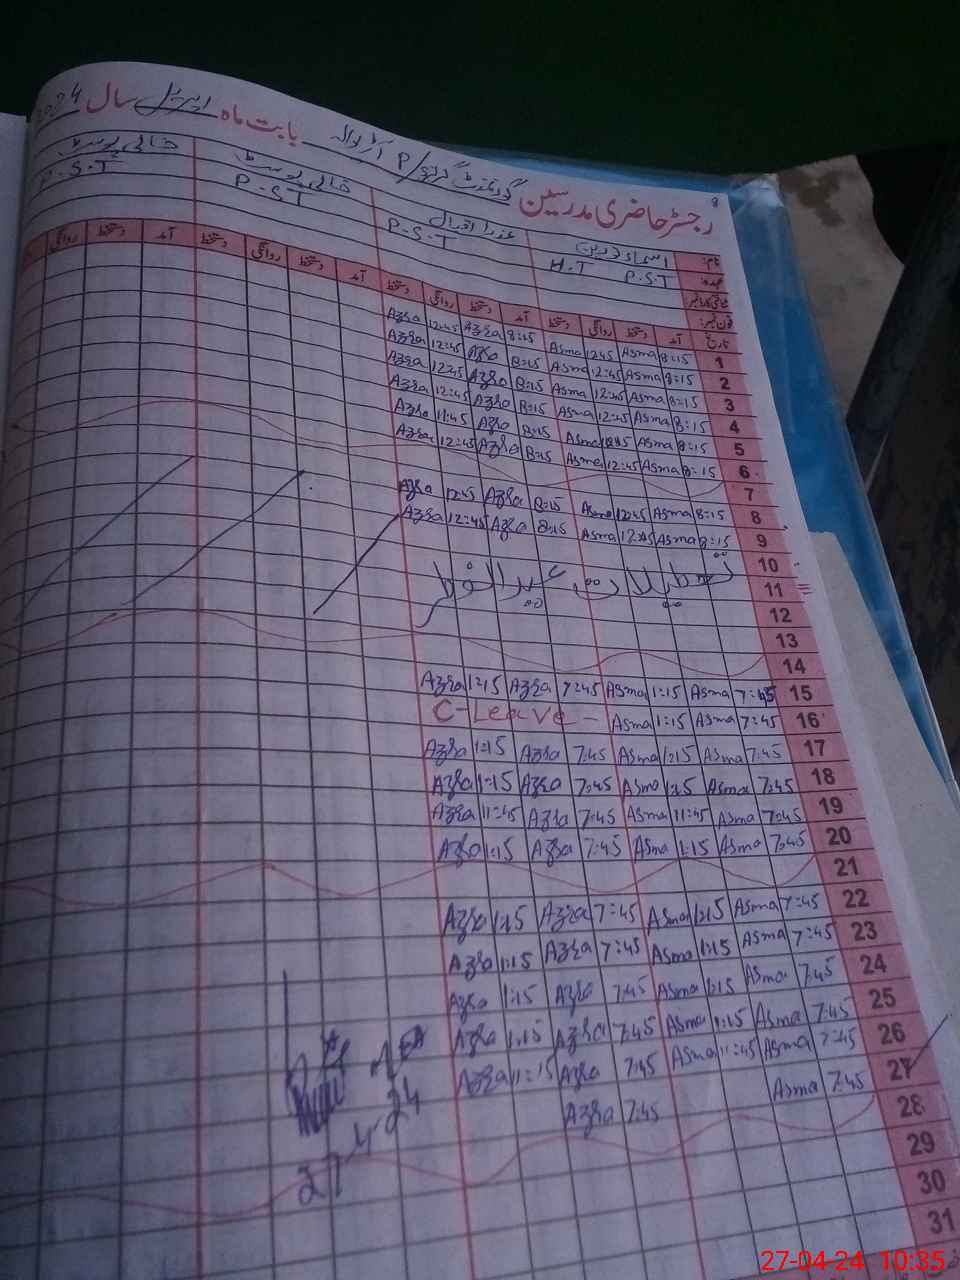 8
رجسٹر حاضری مدرسین گورنمنٹ گرلز P/ بابت ماہ اپریل سال 2024
نام: اسماء عذرا اقبال خالی پوسٹ خالی پوسٹ
عہدہ: P.S.T H.T P.S.T P.S.T P.S.T
شناختی کارڈ نمبر:
فون نمبر:
تاریخ آمد دستخط روانگی دستخط آمد دستخط روانگی دستخط آمد دستخط روانگی دستخط آمد دستخط روانگی
1 8:15 Asma 12:45 Asma 8:15 Azra 12:45 Azra
2 8:15 Asma 12:45 Asma 8:15 Azra 12:45 Azra
3 8:15 Asma 12:45 Asma 8:15 Azra 12:45 Azra
4 8:15 Asma 12:45 Asma 8:15 Azra 12:45 Azra
5 8:15 Asma Asma 8:15 Azra 11:45 Azra
6 8:15 Asma 12:45 Asma 8:15 Azra 12:45 Azra
7
8 8:15 Asma 12:45 Asma 8:15 Azra 12:45 Azra
9 8:15 Asma 12:45 Asma 8:15 Azra 12:45 Azra
10
11 تعطیلات عید الفطر
12
13
14
15 7:45 Asma 1:15 Asma 7:45 Azra 1:15 Azra
16 7:45 Asma 1:15 Asma C-Leave-
17 7:45 Asma 1:15 Asma 7:45 Azra 1:15 Azra
18 7:45 Asma 1:15 Asma 7:45 Azra 1:15 Azra
19 7:45 Asma 11:45 Asma 7:45 Azra 11:45 Azra
20 7:45 Asma 1:15 Asma 7:45 Azra 1:15 Azra
21
22 7:45 Asma 1:15 Asma 7:45 Azra 1:15 Azra
23 7:45 Asma 1:15 Asma 7:45 Azra 1:15 Azra
24 7:45 Asma 1:15 Asma 7:45 Azra 1:15 Azra
25 7:45 Asma 1:15 Asma 7:45 Azra 1:15 Azra
26 7:45 Asma 11:45 Asma 7:45 Azra 11:15 Azra
27 7:45 Asma 7:45 Azra
28
29
30
31
27-4-24
27-04-24 10:35